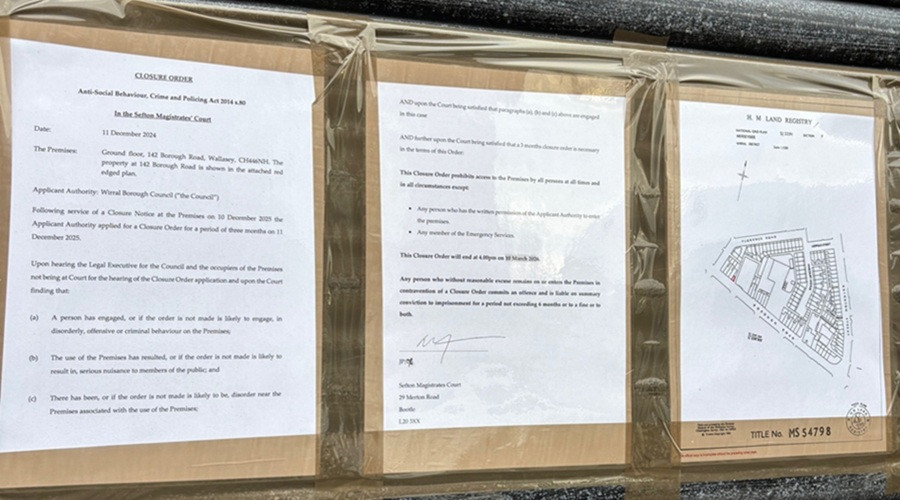 CLOSURE ORDER
Anti-Social Behaviour, Crime and Policing Act 2014 s.80
In the Sefton Magistrates' Court
Date: 11 December 2024
The Premises: Ground floor, 142 Borough Road, Wallasey, CH446NH. The
property at 142 Borough Road is shown in the attached red
edged plan.
Applicant Authority: Wirral Borough Council ("the Council")
Following service of a Closure Notice at the Premises on 10 December 2025 the
Applicant Authority applied for a Closure Order for a period of three months on 11
December 2025.
Upon hearing the Legal Executive for the Council and the occupiers of the Premises
not being at Court for the hearing of the Closure Order application and upon the Court
finding that:
(a) A person has engaged, or if the order is not made is likely to engage, in
disorderly, offensive or criminal behaviour on the Premises;
(b) The use of the Premises has resulted, or if the order is not made is likely to
result in, serious nuisance to members of the public; and
(c) There has been, or if the order is not made is likely to be, disorder near the
Premises associated with the use of the Premises;
AND upon the Court being satisfied that paragraphs (a), (b) and (c) above are engaged
in this case
AND further upon the Court being satisfied that a 3 months closure order is necessary
in the terms of this Order:
This Closure Order prohibits access to the Premises by all persons at all times and
in all circumstances except:
• Any person who has the written permission of the Applicant Authority to enter
the premises.
• Any member of the Emergency Services.
This Closure Order will end at 4.00pm on 10 March 2026.
Any person who without reasonable excuse remains on or enters the Premises in
contravention of a Closure Order commits an offence and is liable on summary
conviction to imprisonment for a period not exceeding 6 months or to a fine or to
both.
Sefton Magistrates Court
29 Merton Road
Bootle
L20 3XX
H. M. LAND REGISTRY
TITLE No. MS 54798